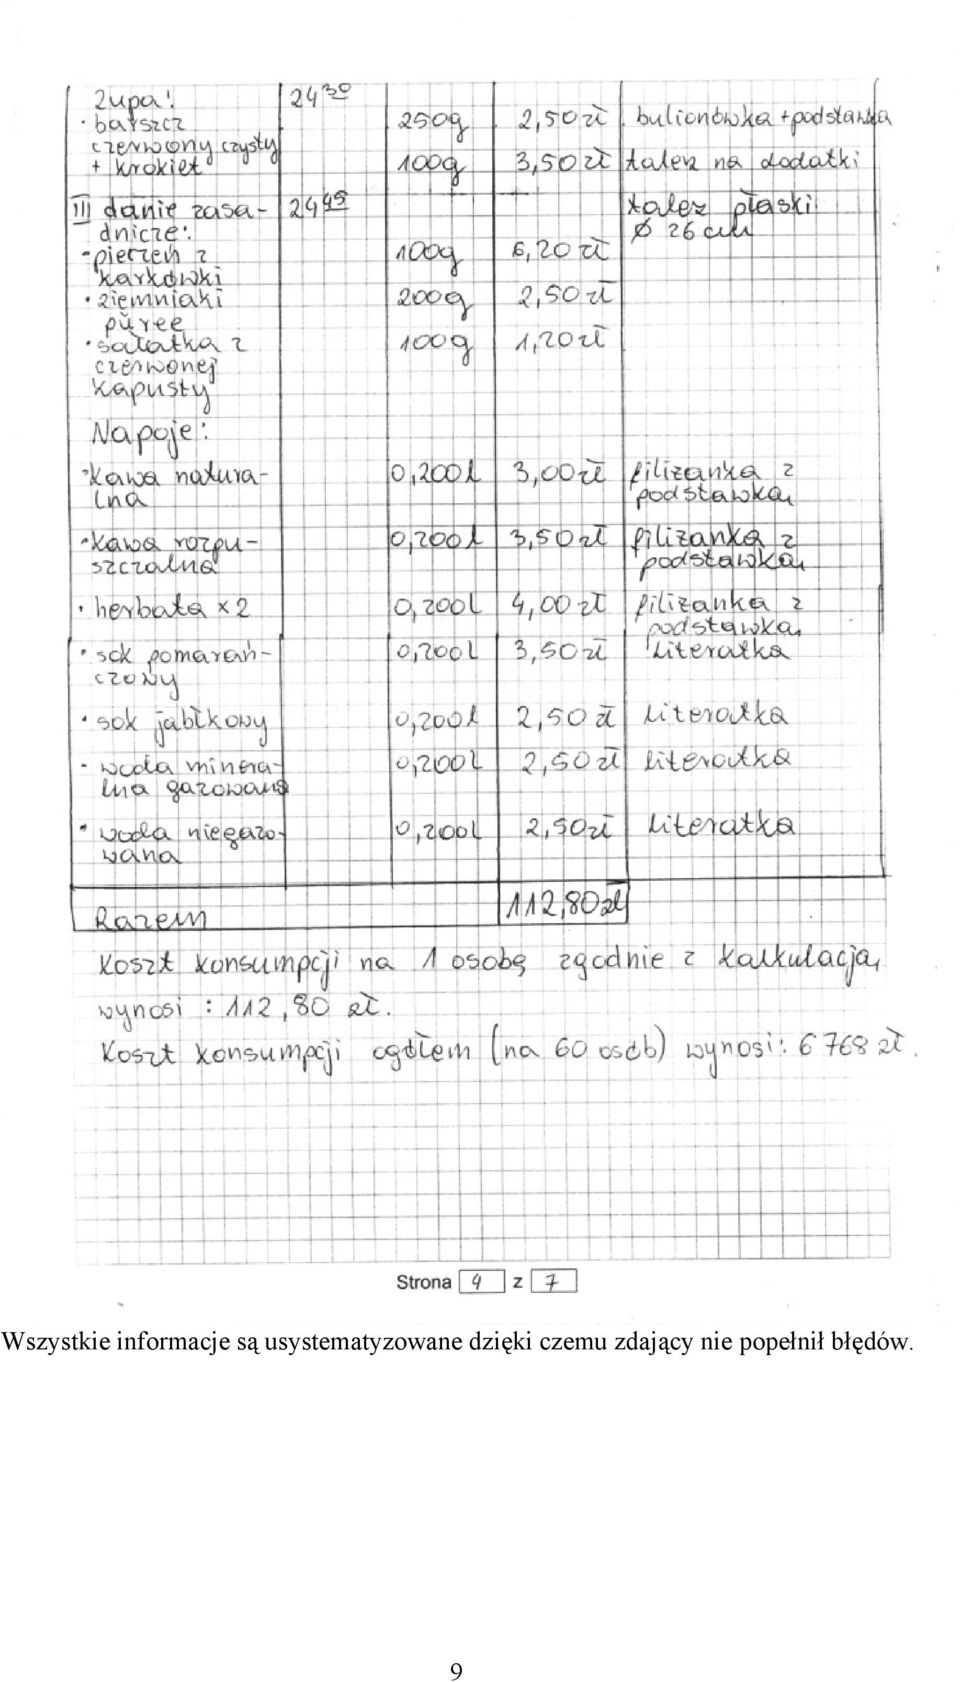 Zupa: 24³⁰
• barszcz 250g 2,50 zł bulionówka + podstawka
czerwony czysty
+ krokiet 100g 3,50 zł talerz na dodatki
III danie zasa- 24⁴⁵ talerz płaski
dnicze: ∅ 26 cm
• pieczeń z 100g 6,20 zł
karkówki
• ziemniaki 200g 2,50 zł
püree
• sałatka z 100g 1,20 zł
czerwonej
kapusty
Napoje:
• kawa natura- 0,200l 3,00 zł filiżanka z
lna podstawką
• kawa rozpu- 0,200l 3,50 zł filiżanka z
szczalna podstawką
• herbata x 2 0,200l 4,00 zł filiżanka z
podstawką
• sok pomarań- 0,200l 3,50 zł literatka
czowy
• sok jabłkowy 0,200l 2,50 zł literatka
- woda minera- 0,200l 2,50 zł literatka
lna gazowana
• woda niegazo- 0,200l 2,50 zł literatka
wana
Razem 112,80 zł
Koszt konsumpcji na 1 osobę zgodnie z kalkulacją
wynosi : 112,80 zł.
Koszt konsumpcji ogółem (na 60 osób) wynosi: 6 768 zł.
Strona 4 z 7
Wszystkie informacje są usystematyzowane dzięki czemu zdający nie popełnił błędów.
9